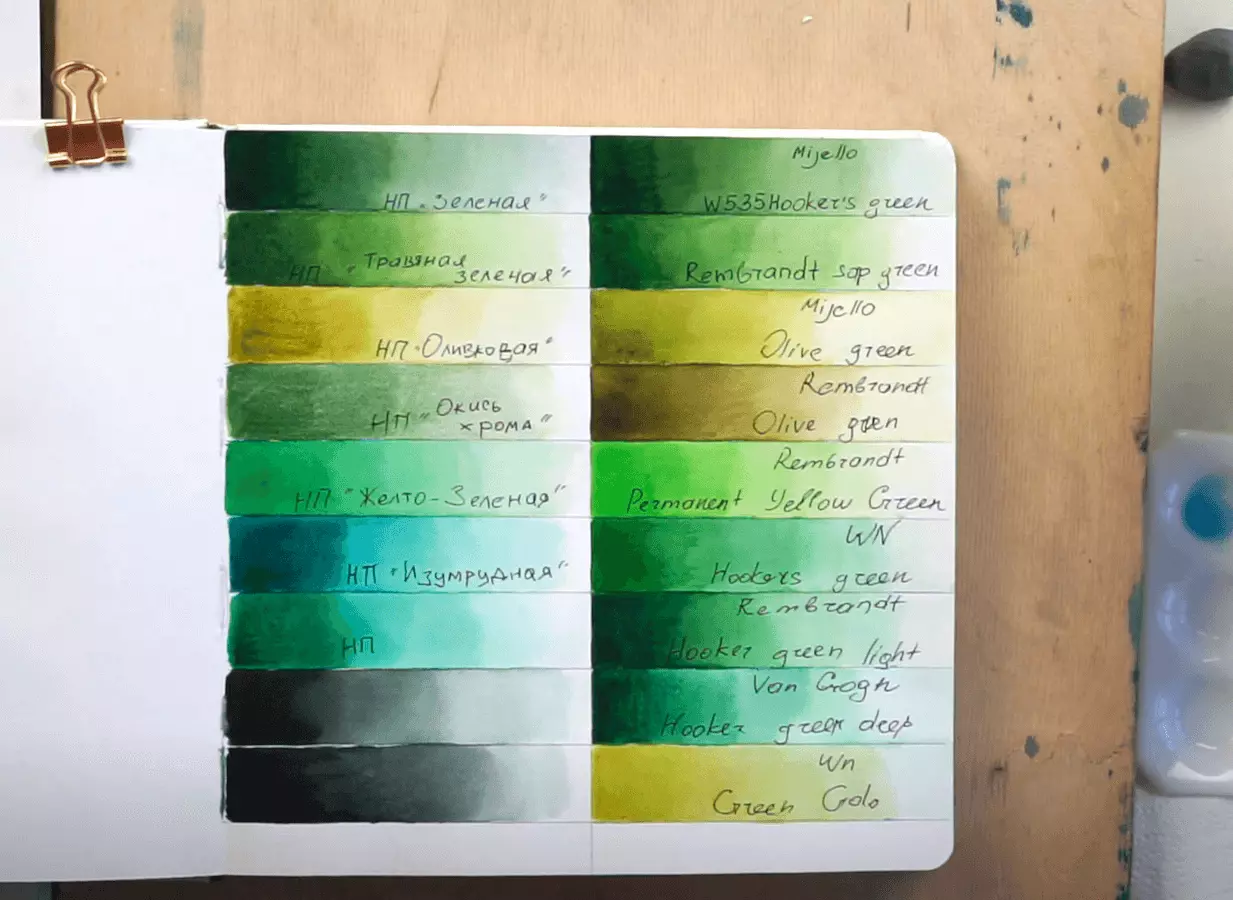 НП "Зеленая"
НП "Травяная
зеленая"
НП "Оливковая"
НП "Окись
хрома"
НП "Желто-Зеленая"
НП "Изумрудная"
НП
Mijello
W535 Hooker's green
Rembrandt sap green
Mijello
Olive green
Rembrandt
Olive green
Rembrandt
Permanent Yellow Green
WN
Hookers green
Rembrandt
Hooker green light
Van Gogh
Hooker green deep
Wn
Green Golo